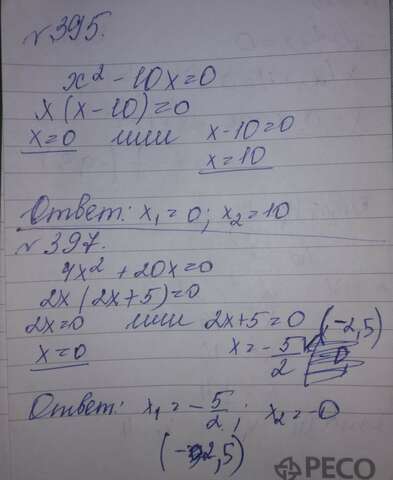 №395.
x² - 10x = 0
x(x - 10) = 0
x = 0 или x - 10 = 0
x = 10
Ответ: x₁ = 0; x₂ = 10
№397.
4x² + 20x = 0
2x(2x + 5) = 0
2x = 0 или 2x + 5 = 0 (-2,5)
x = 0 x = -5/2
Ответ: x₁ = -5/2; x₂ = 0
(-2,5)
PECO